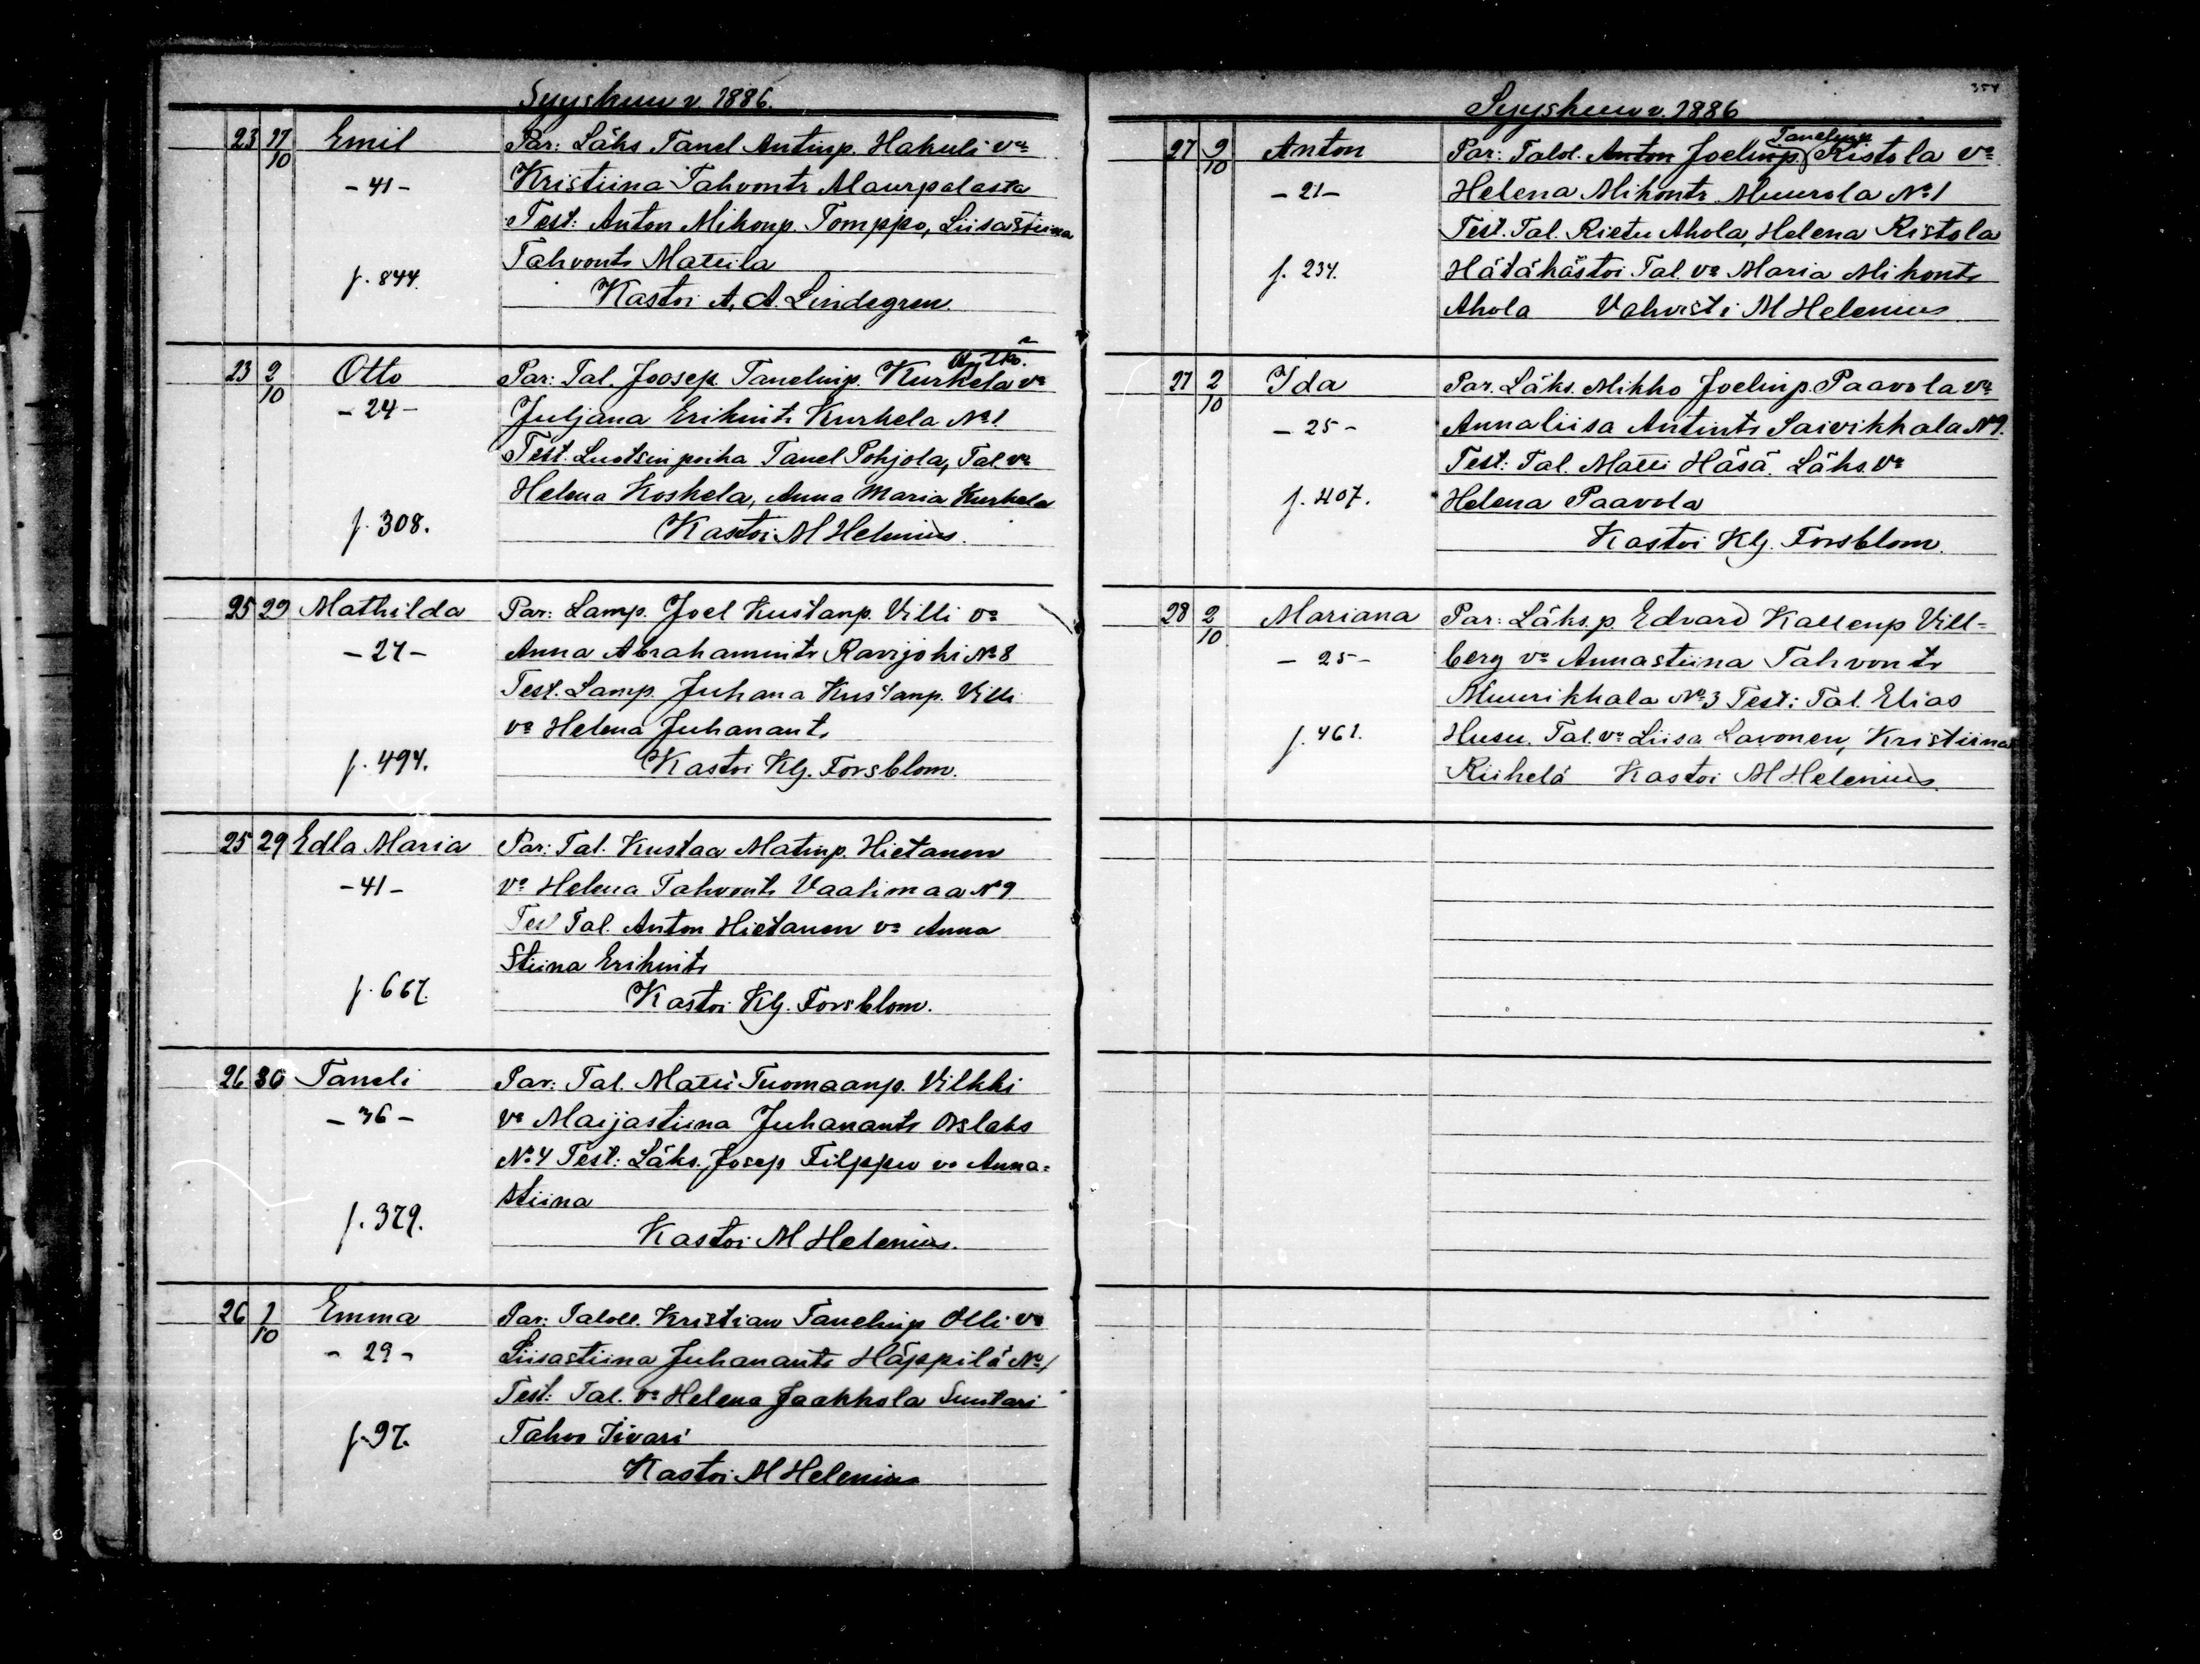 Syyskuu v. 1886.
23 17/10 Emil Par: Läks Tanel Antinp. Hakuli va
-41- Kristiina Tahvontr Maurpalasta
Test: Anton Mikonp. Tomppo, Liisastiina
Tahvontr Mattila
f. 844. Kastoi A. A. Lindegren.
23 2/10 Otto Par: Tal. Joosep Tanelinp. Kurkela va
-24- Juljana Erikintr Kurkela No 1
Test. Luotsin poika Tanel Pohjola, Tal. va
Helena Koskela, Anna Maria Kurkela
f. 308. Kastoi M Helenius.
25 29 Mathilda Par: Lamp. Joel Kustanp. Villi va
-27- Anna Abrahamintr Ravijoki No 8
Test. Lamp. Juhana Kustanp. Villi
va Helena Juhanantr
f. 494. Kastoi Klj. Forsblom.
25 29 Edla Maria Par: Tal. Kustaa Matinp. Hietanen
-41- va Helena Tahvontr Vaalimaa No 9
Test Tal. Anton Hietanen va Anna
Stiina Erikintr
f. 667. Kastoi Klj. Forsblom.
26 30 Taneli Par: Tal. Matti Tuomaanp. Vilkki
-36- va Maijastiina Juhanantr Orslahs
No 4 Test: Läks. Josep Filppu va Anna-
stiina
f. 379. Kastoi M Helenius.
26 1/10 Emma Par: Taloll. Kristian Tanelinp Olli va
-29- Liisastiina Juhanantr Häppilä No 1
Test: Tal. va Helena Jaakkola Suntari
Tahvo Iivari
f. 97. Kastoi M Helenius
Syyskuu v. 1886
27 2/10 Anton Par: Talol. Anton Joelinp. Tanelinp Ristola va
-21- Helena Mikontr Muurola No 1
Test. Tal. Rietu Ahola, Helena Ristola
f. 234. Hätäkastoi Tal. va Maria Mikontr
Ahola Vahvisti M Helenius
27 2/10 Ida Par. Läks. Mikko Joelinp. Paavola va
-25- Annaliisa Antintr Saivikkala No 9.
Test: Tal. Matti Häsä. Läks. va
f. 407. Helena Paavola
Kastoi Klj. Forsblom.
28 2/10 Mariana Par: Läks. p. Edvard Kallenp Vill-
-25- berg va Annastiina Tahvontr
Muurikkala No 3 Test: Tal. Elias
f. 461. Husu. Tal. va Liisa Lavonen, Kristiina
Riihelä Kastoi M Helenius.